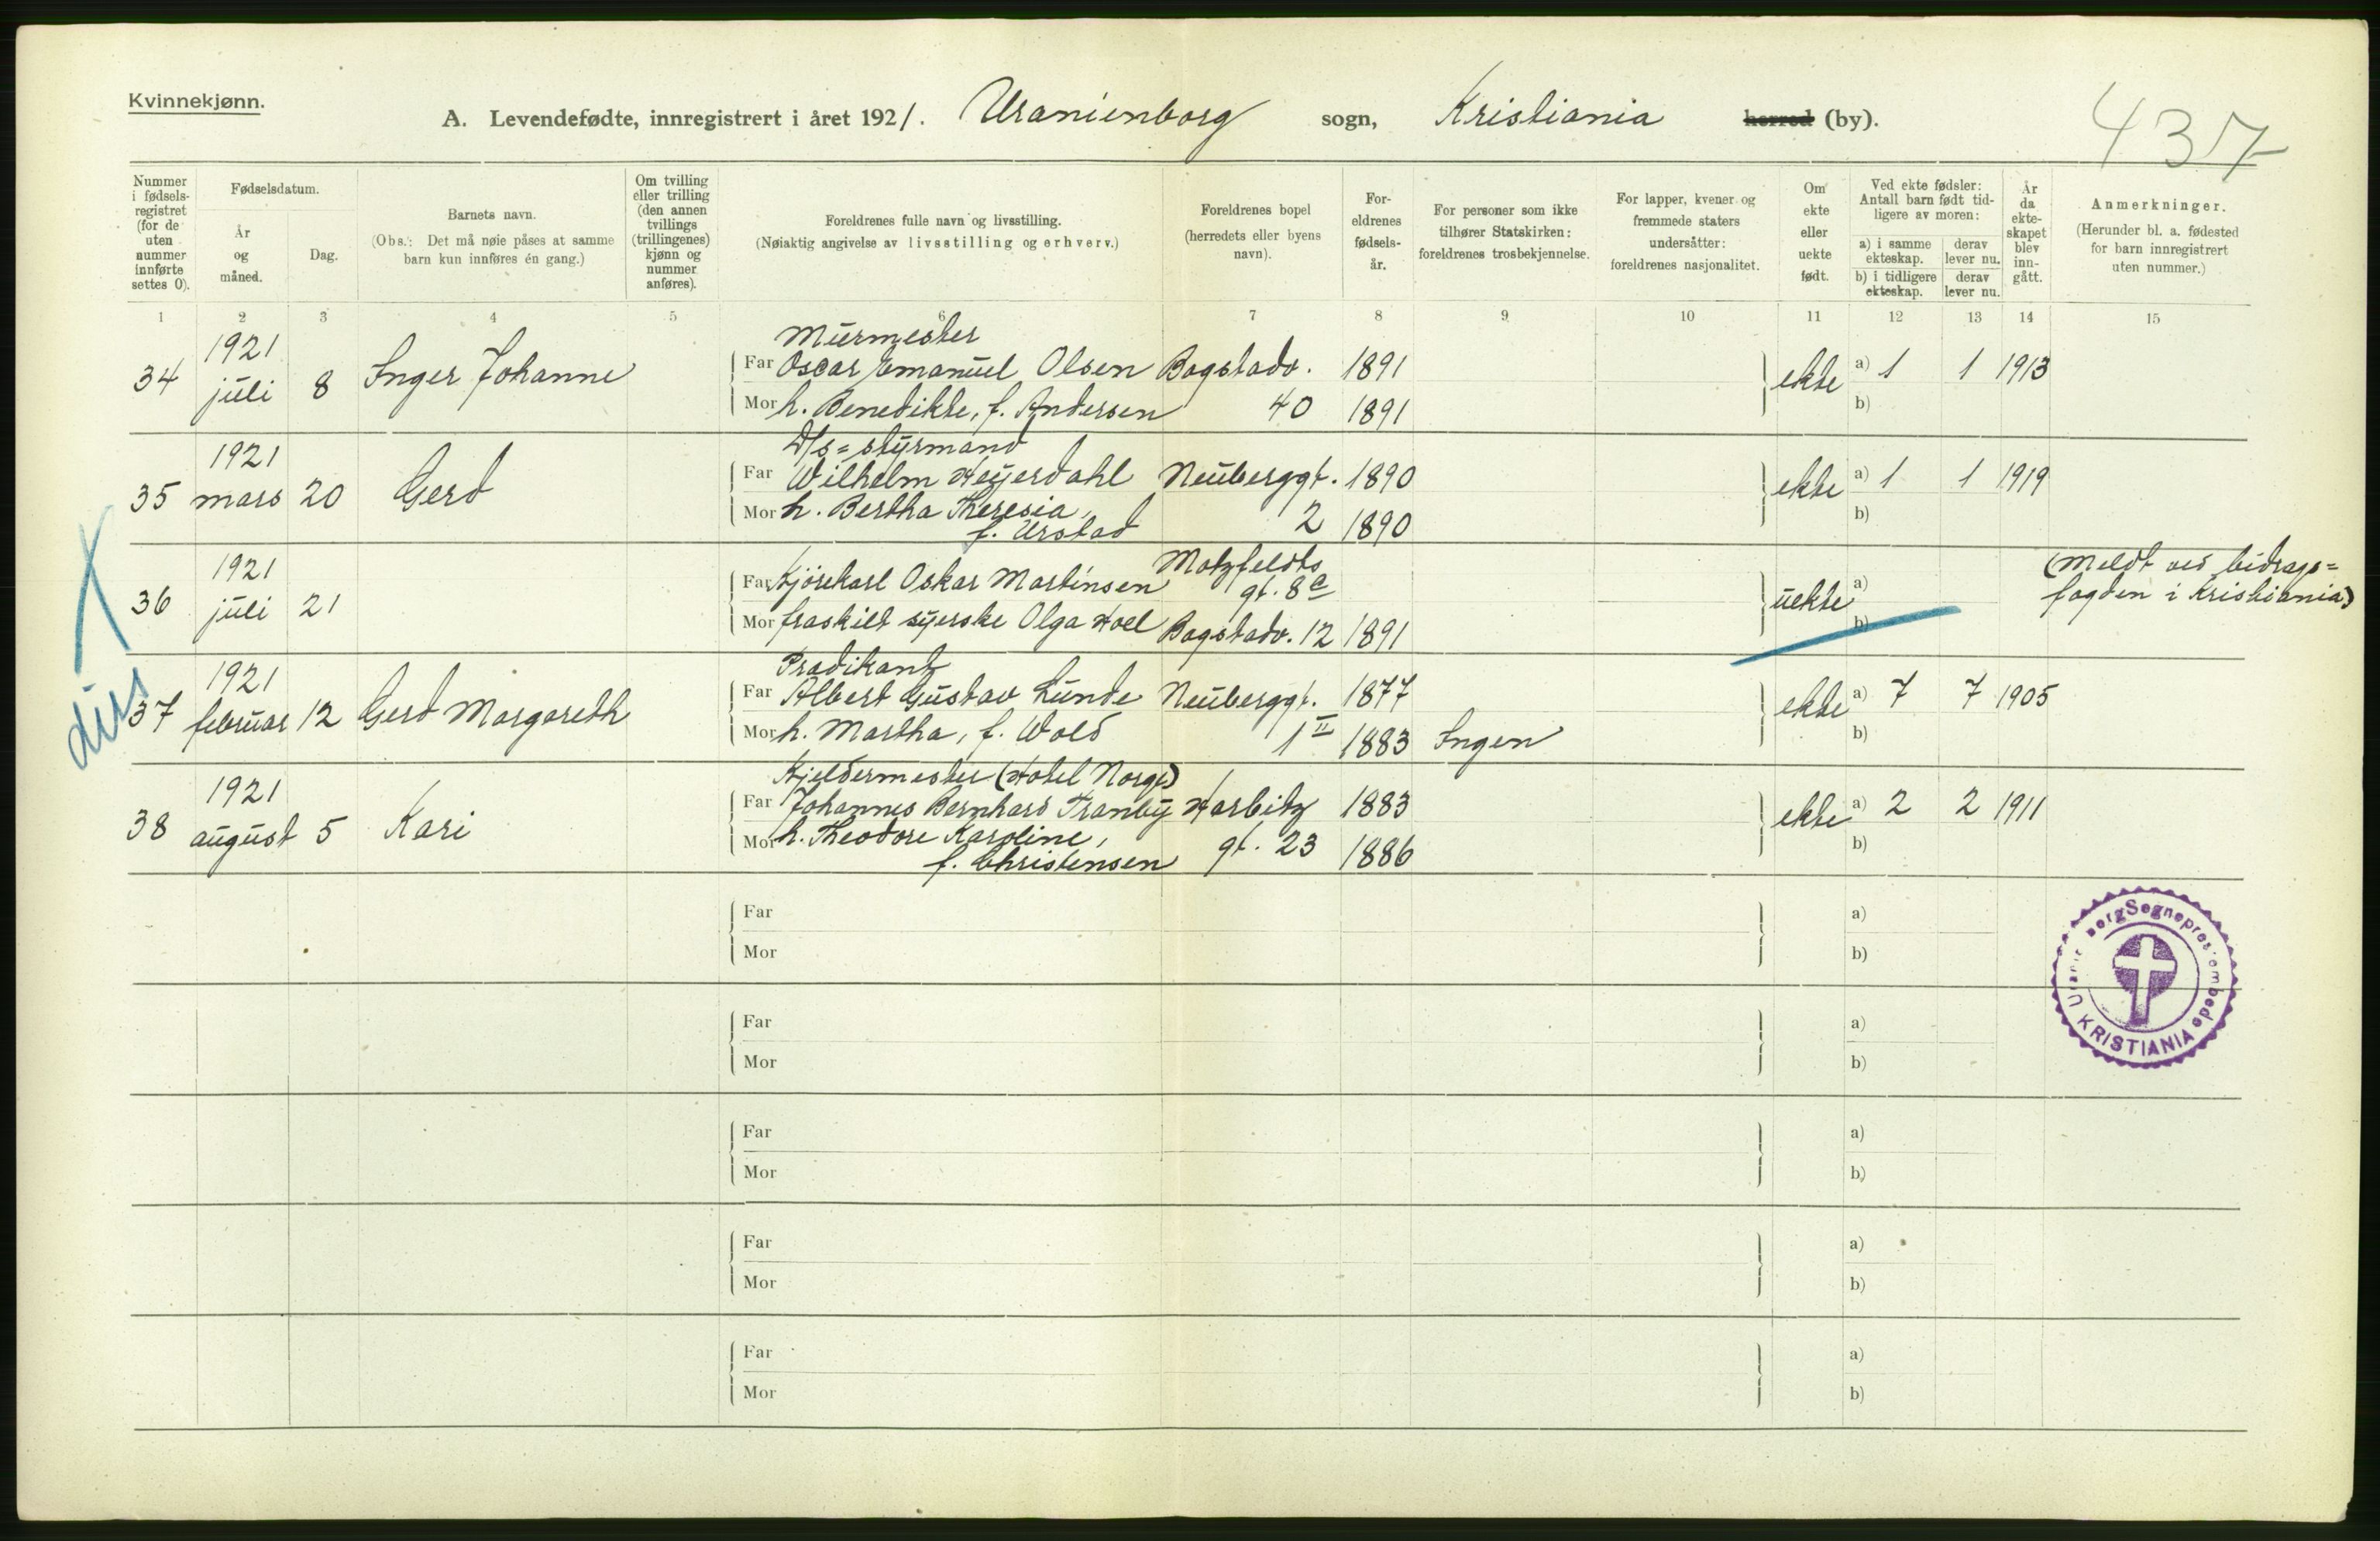 Kvinnekjønn.
A. Levendefødte, innregistrert i året 1921. Uranienborg sogn, Kristiania herred (by).
437
Nummer i fødsels-registret (for de uten nummer innførte settes 0).
Fødselsdatum.
År og måned.
Dag.
Barnets navn.
(Obs.: Det må nøie påses at samme barn kun innføres én gang.)
Om tvilling eller trilling (den annen tvillings (trillingenes) kjønn og nummer anføres).
Foreldrenes fulle navn og livsstilling.
(Nøiaktig angivelse av livsstilling og erhverv.)
Foreldrenes bopel (herredets eller byens navn).
For-eldrenes fødsels-år.
For personer som ikke tilhører Statskirken: foreldrenes trosbekjennelse.
For lapper, kvener og fremmede staters undersåtter: foreldrenes nasjonalitet.
Om ekte eller uekte født.
Ved ekte fødsler: Antall barn født tid-ligere av moren:
a) i samme ekteskap.
derav lever nu.
b) i tidligere ekteskap.
derav lever nu.
År da ekte-skapet blev inn-gått.
Anmerkninger.
(Herunder bl. a. fødested for barn innregistrert uten nummer.)
1 2 3 4 5 6 7 8 9 10 11 12 13 14 15
1921 Murmester
34 juli 8 Inger Johanne Far Oscar Emanuel Olsen Bogstadv. 1891 ekte a) 1 1 1913
Mor h. Benedikte, f. Andersen 40 1891 b)
1921 D/s=styrmand
35 mars 20 Gerd Far Wilhelm Heyerdahl Neuberggt. 1890 ekte a) 1 1 1919
Mor h. Bertha Theresia, 2 1890 b)
f. Urstad
1921 Motzfeldts (Meldt ved bidrags=
36 juli 21 Far Kjørekarl Oskar Martinsen gt. 8c uekte a) fogden i Kristiania)
Mor fraskilt syerske Olga Hoel Bogstadv. 12 1891 b)
1921 Prædikant
37 februar 12 Gerd Margareth Far Albert Gustav Lunde Neuberggt. 1877 ekte a) 7 7 1905
Mor h. Martha, f. Wold 1 II 1883 Ingen b)
1921 Kjeldermester (Hotel Norge)
38 august 5 Kari Far Johannes Bernhard Tranby Harbitz 1883 ekte a) 2 2 1911
Mor h. Theodore Karoline, gt. 23 1886 b)
f. Christensen
Far a)
Mor b)
Far a)
Mor b)
Far a)
Mor b)
Far a)
Mor b)
Far a)
Mor b)
Sognepres embede
KRISTIANIA